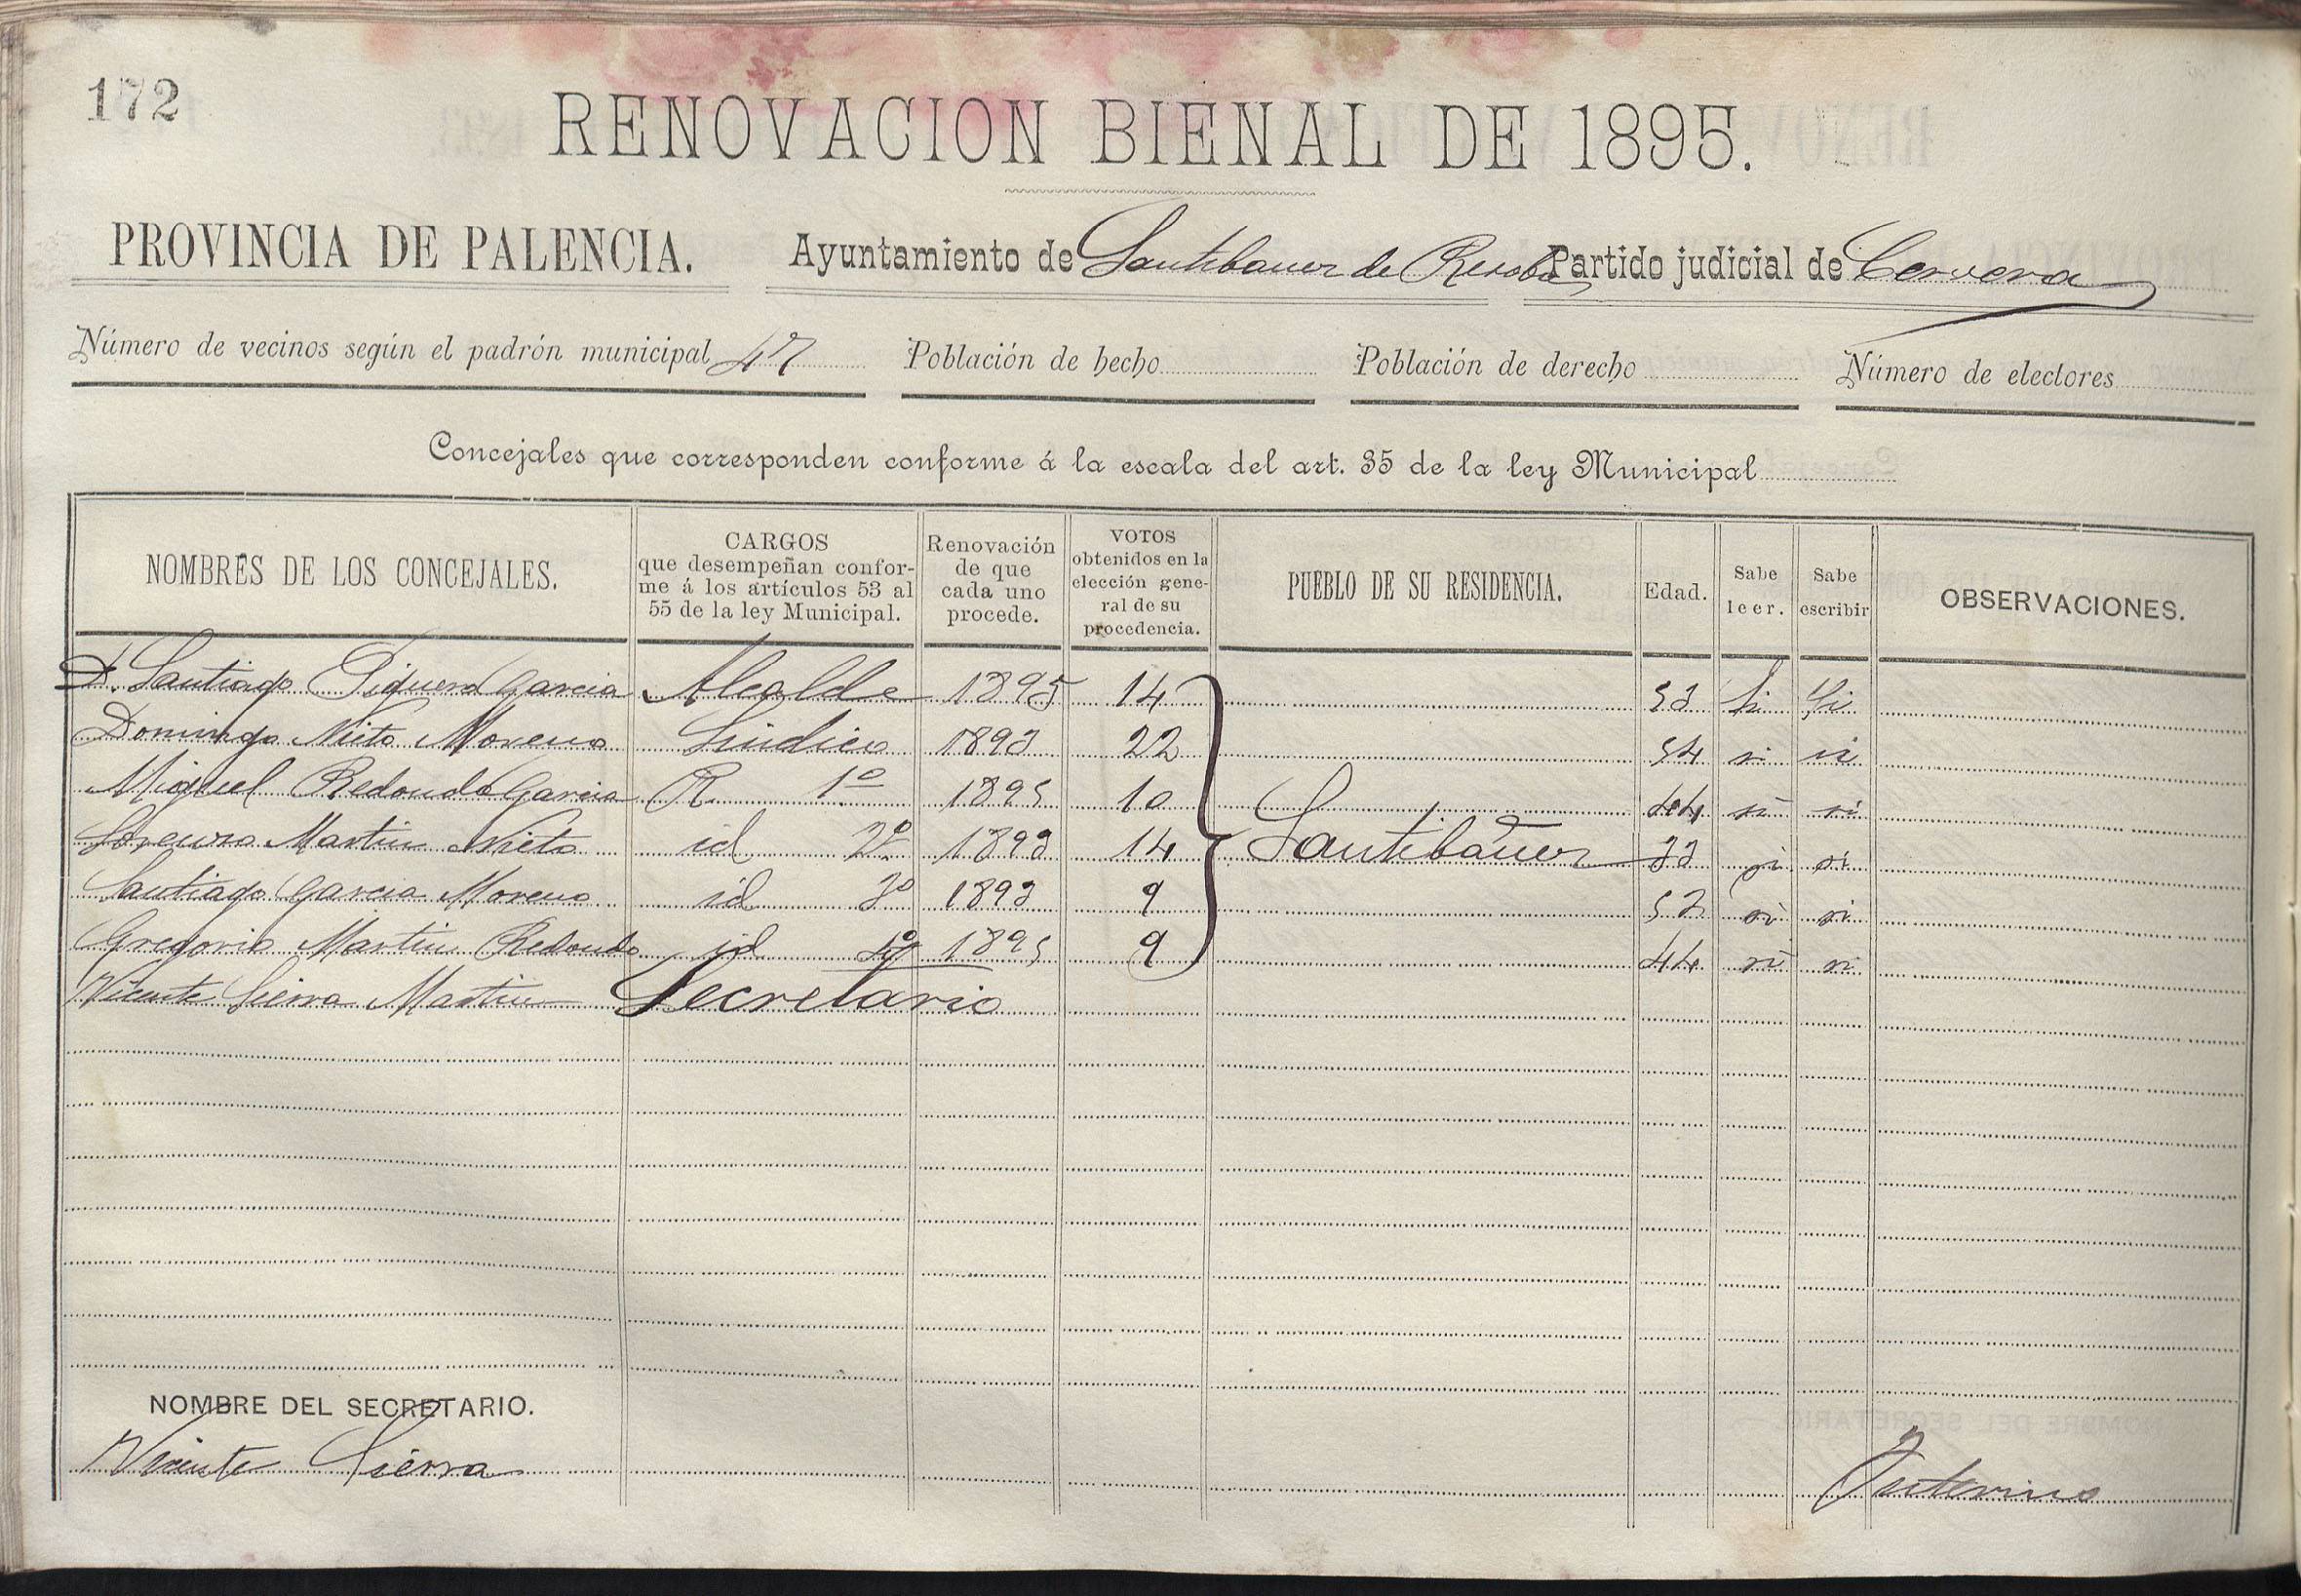 172
RENOVACION BIENAL DE 1895.
PROVINCIA DE PALENCIA. Ayuntamiento de Santibañez de Resoba Partido judicial de Cervera
Número de vecinos según el padrón municipal 47 Población de hecho Población de derecho Número de electores
Concejales que corresponden conforme á la escala del art. 35 de la ley Municipal
NOMBRES DE LOS CONCEJALES. CARGOS que desempeñan conforme á los artículos 53 al 55 de la ley Municipal. Renovación de que cada uno procede. VOTOS obtenidos en la elección general de su procedencia. PUEBLO DE SU RESIDENCIA. Edad. Sabe leer. Sabe escribir OBSERVACIONES.
D. Santiago Piquera Garcia Alcalde 1895 14 53 Si Si
Domingo Nieto Moreno Sindico 1893 22 54 si si
Miguel Redondo Garcia R. 1º 1895 10 44 si si
Lorenzo Martin Nieto id 2º 1893 14 Santibañez 33 si si
Santiago Garcia Moreno id 3º 1893 9 52 si si
Gregorio Martin Redondo id 4º 1895 9 44 si si
Vicente Sierra Martin Secretario
NOMBRE DEL SECRETARIO.
Vicente Sierra Interino